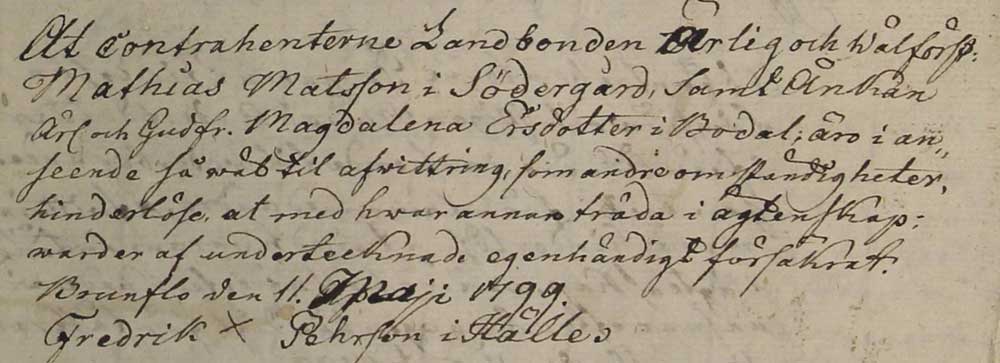 At Contrahenterne Landbonden Ärlig och Wälförst:
Mathias Matsson i Södergård, samt Änkan
Ärl och Gudfr. Magdalena Ersdotter i Bodal; äro i an„
seende så wäl til afwittring, som andre omständigheter,
hinderlöse, at med hwarannan träda i ägtenskap;
warder af undertecknade egenhändigt försäkrat.
Brunflo den 11. Maji 1799.
Fredrik × Pehrson i Hälle